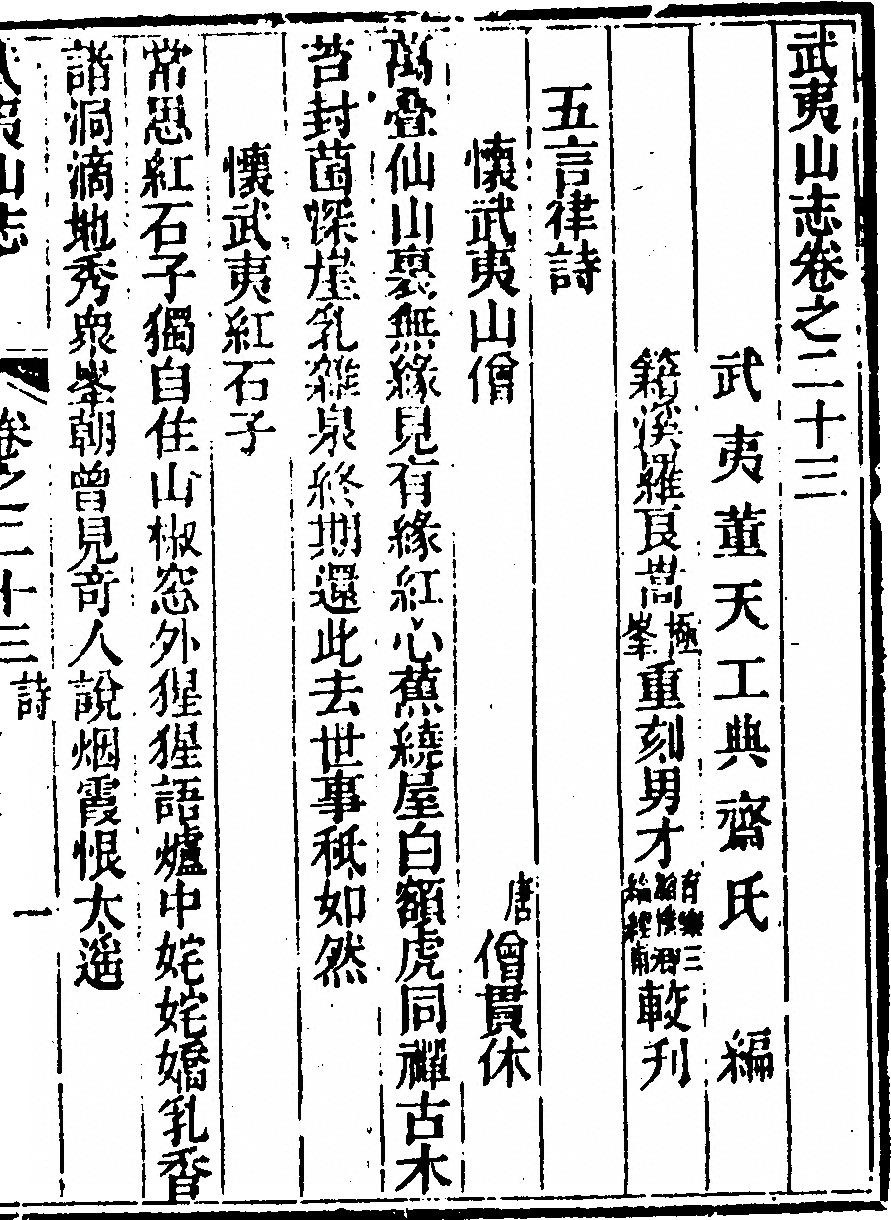 武夷山志卷之二十三
武夷董天工典齋氏　編
籍溪羅良嵩極峯重刻男才綸　較刋
五言律詩
懷武夷山僧　唐僧貫休
萬疊仙山裏無緣見有緣紅心蕉繞屋白額虎同禪古木
苔封菌深崖乳雜泉終期還此去世事秪如然
懷武夷紅石子
常思紅石子獨自住山椒窓外猩猩語爐中姹姹嬌乳香
諳洞滴地秀衆峯朝曾見竒人說烟霞恨太遥
武夷山志　卷之二十三　詩　一